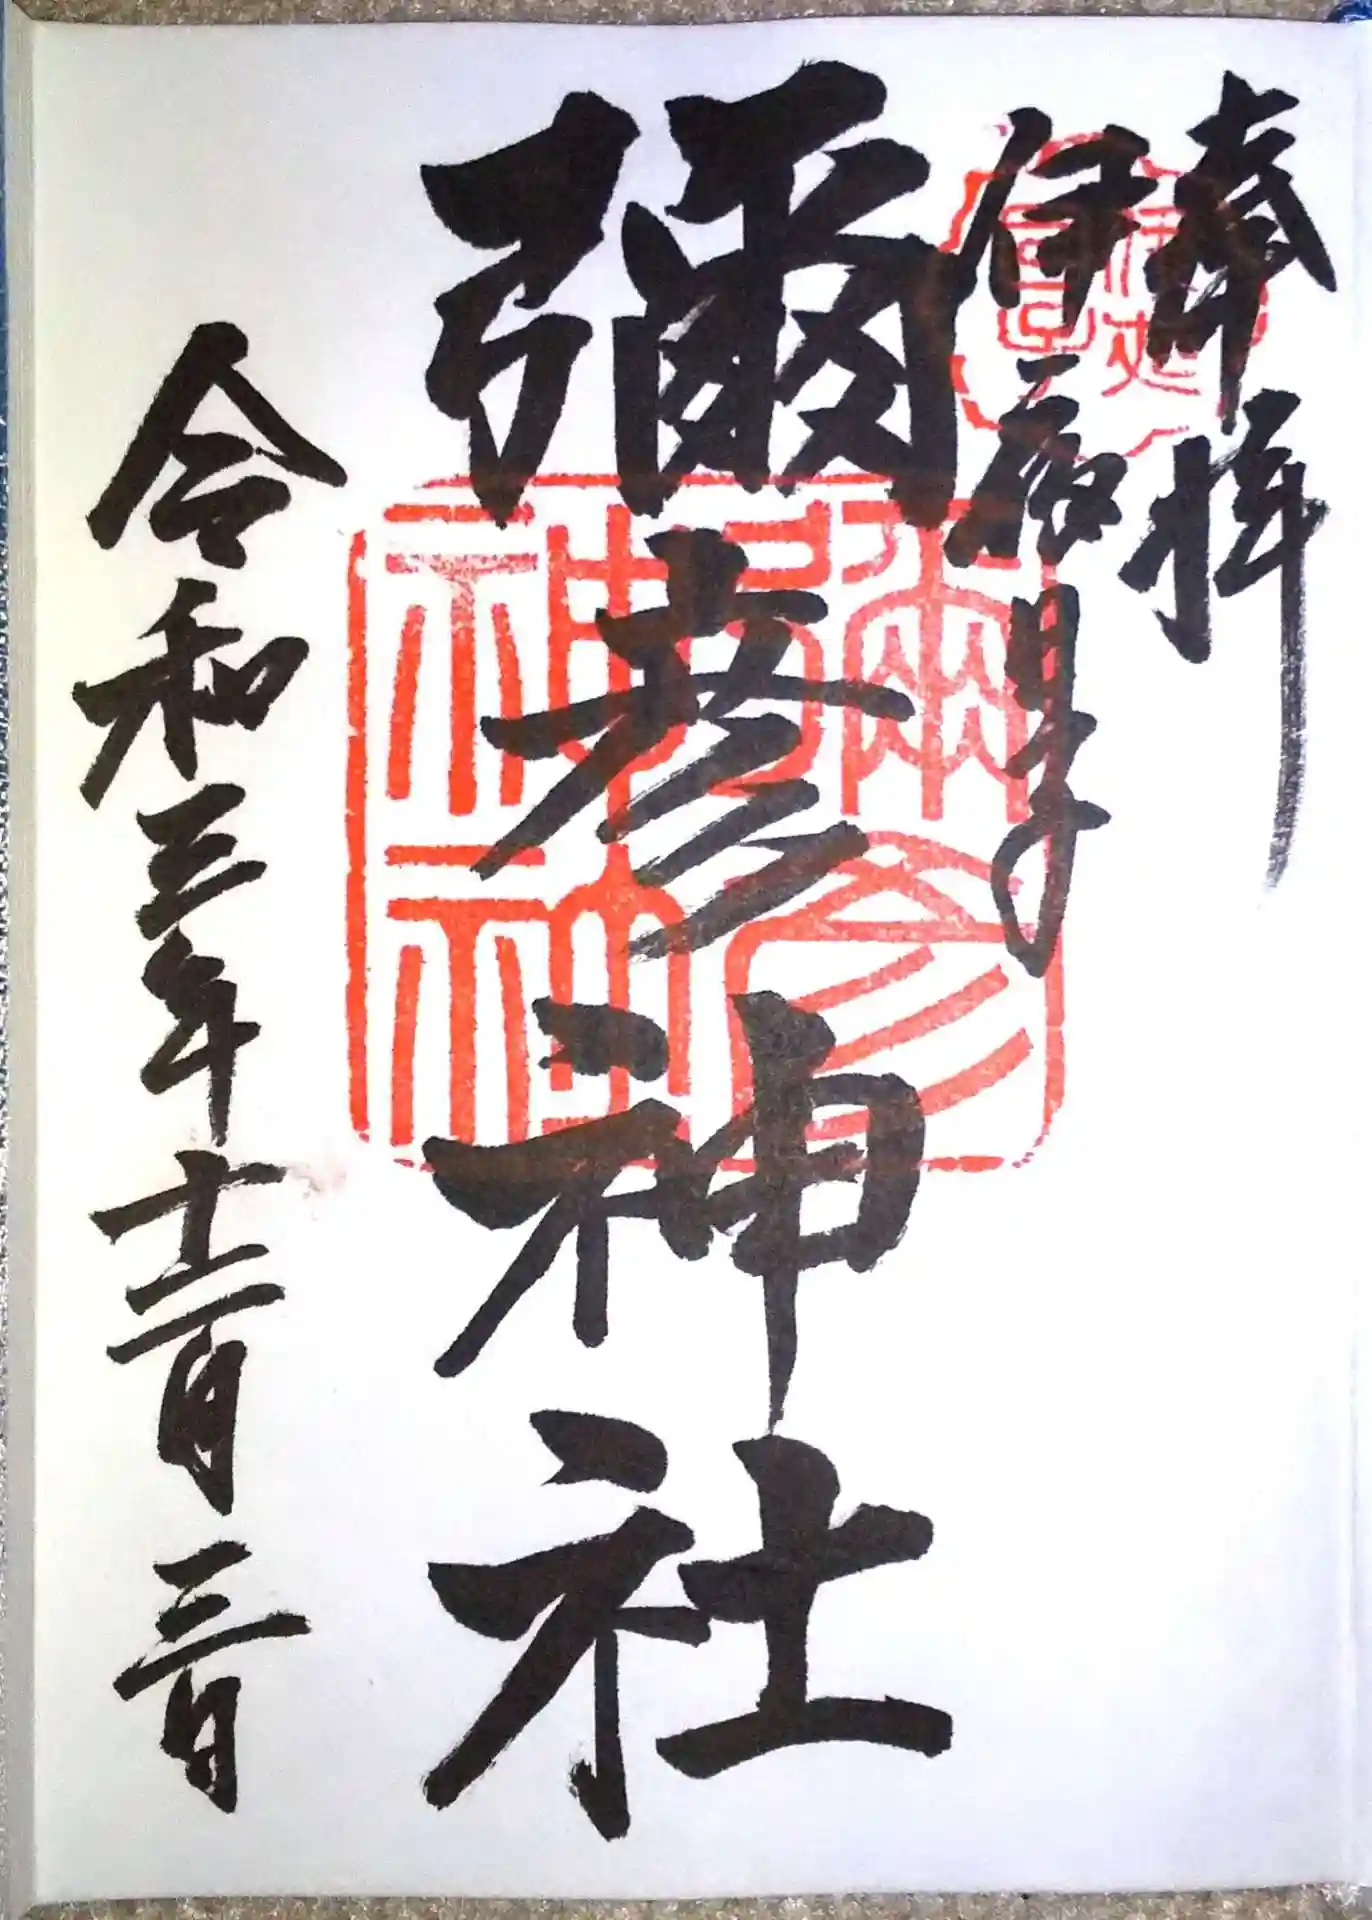 奉拝
伊夜日子
彌彦神社
令和三年十二月三日
彌彦
神社